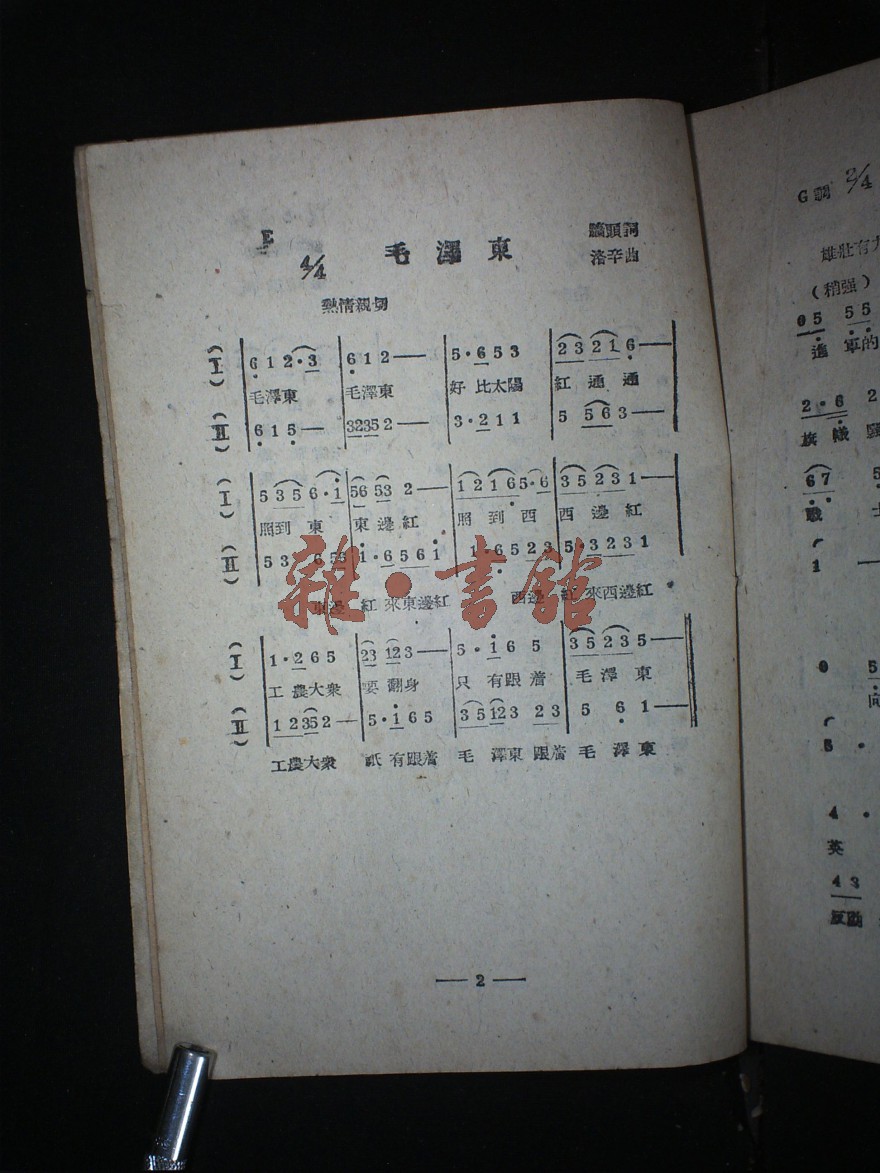 E
毛澤東
詞
4/4
洛辛曲
熱情親切
(I) 6 1 2 • 3 6 1 2 — 5 • 6 5 3 2 3 2 1 6 —
毛澤東 毛澤東 好比太陽 紅通通
(II) 6 1 5 — 3235 2 — 3 • 2 1 1 5 5 6 3 —
(I) 5 3 5 6 • i 56 53 2 — 1 2 1 6 5 • 6 3 5 2 3 1 —
照到東 東邊紅 照到西 西邊紅
(II) 5 3 6 55 i • 6 5 6 i 1 • 6 5 2 3 5 • 3 2 3 1
邊紅來東邊紅 西邊紅來西邊紅
(I) 1 • 2 6 5 23 12 3 — 5 • i 6 5 3 5 2 3 5 —
工農大衆 要翻身 只有跟着 毛澤東
(II) 1 2 35 2 — 5 • i 6 5 3 5 12 3 2 3 5 6 1 —
工農大衆 祇有跟着 毛澤東跟着 毛澤東
— 2 —
雜•書館
G調 2/4
雄壯有力
(稍强)
0 5 5 5
進軍的
2 • 6 2
旗幟
6 7 5
戰士
1 —
0 5
向
5 •
4 •
英
4 3
反動